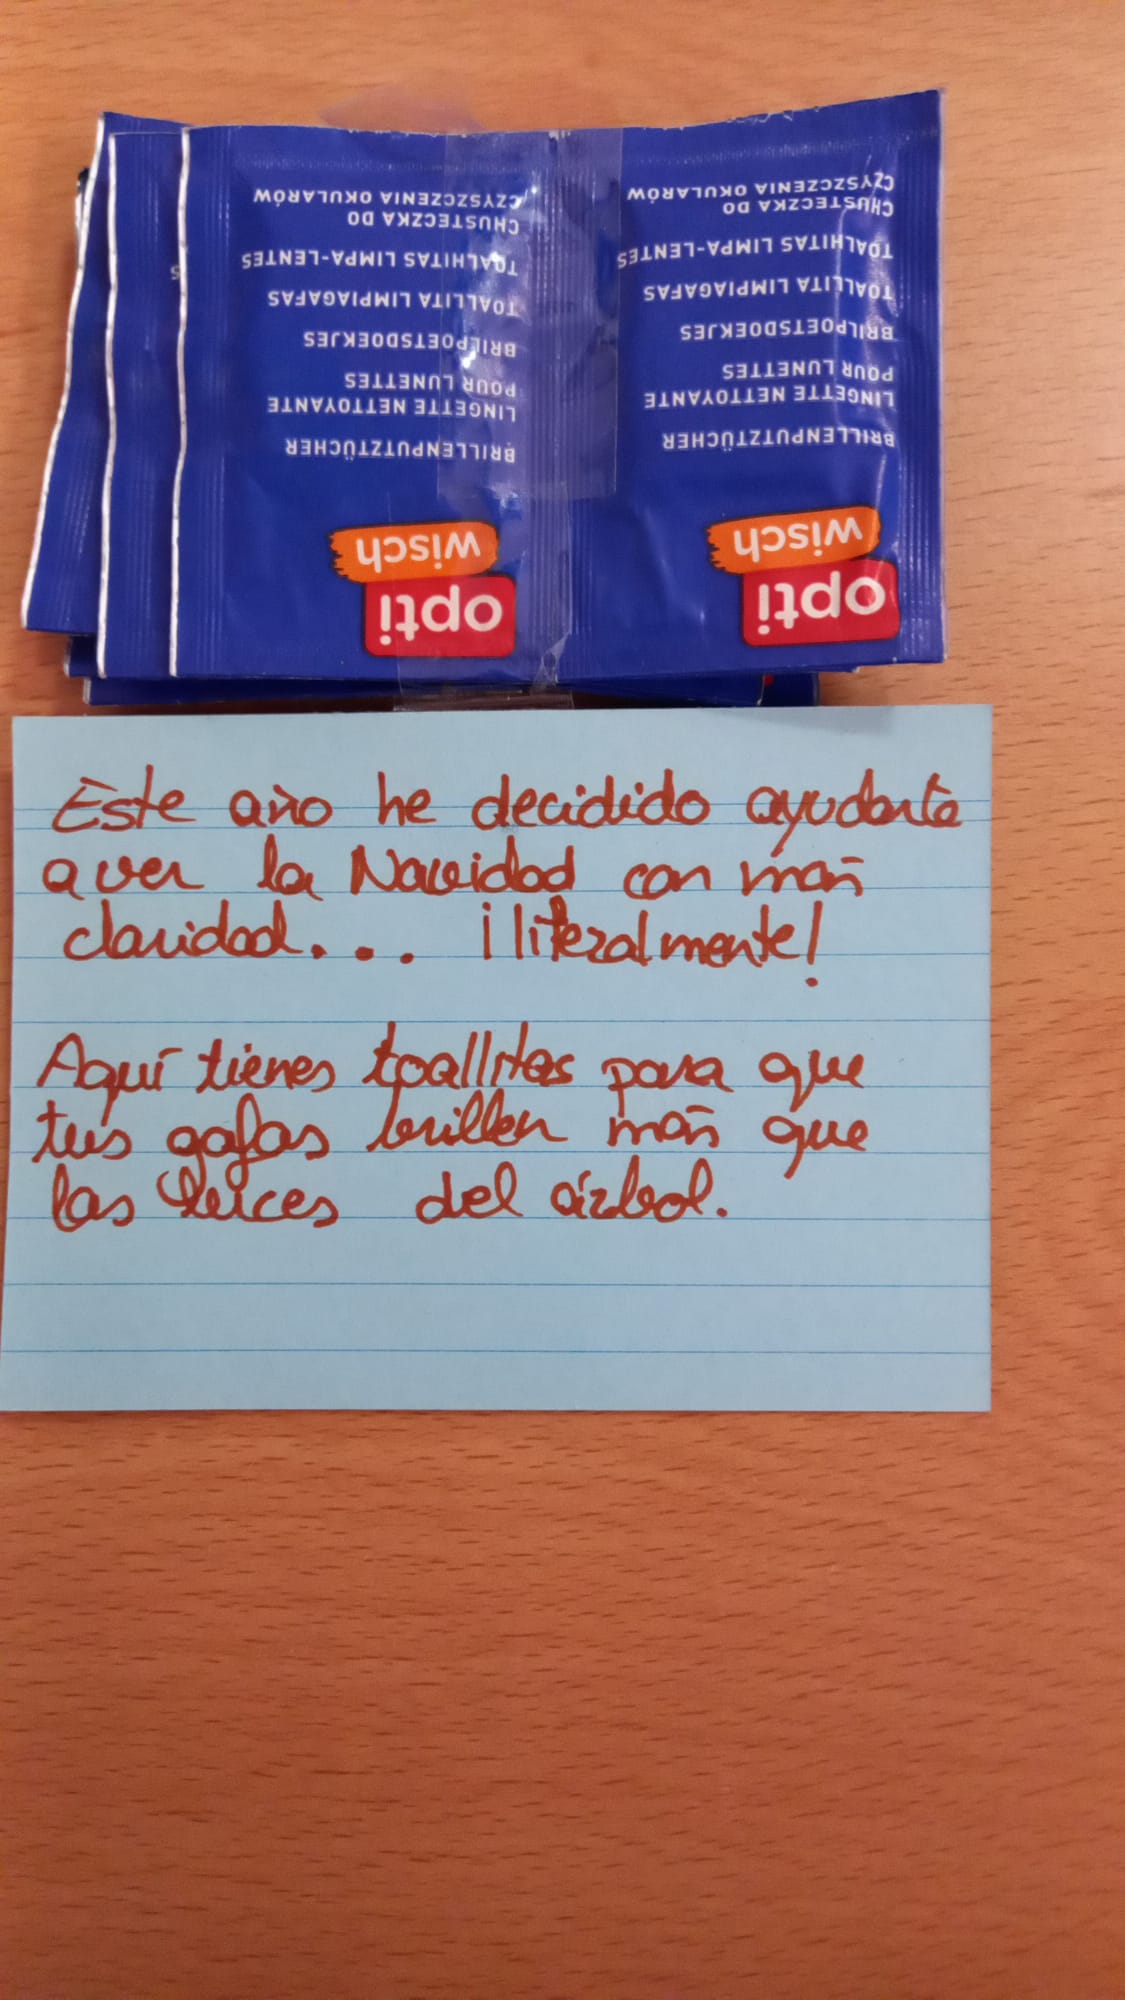 CZYSZCZENIA OKULARÓW
CHUSTECZKA DO
TOALHITAS LIMPA-LENTES
TOALLITA LIMPIAGAFAS
BRILPOETSDOEKJES
POUR LUNETTES
LINGETTE NETTOYANTE
BRILLENPUTZTÜCHER
wisch
opti
CZYSZCZENIA OKULARÓW
CHUSTECZKA DO
TOALHITAS LIMPA-LENTES
TOALLITA LIMPIAGAFAS
BRILPOETSDOEKJES
POUR LUNETTES
LINGETTE NETTOYANTE
BRILLENPUTZTÜCHER
wisch
opti
S
Este año he decidido ayudarte
a ver la Navidad con más
claridad... ¡literalmente!
Aquí tienes toallitas para que
tus gafas brillen más que
las luces del árbol.